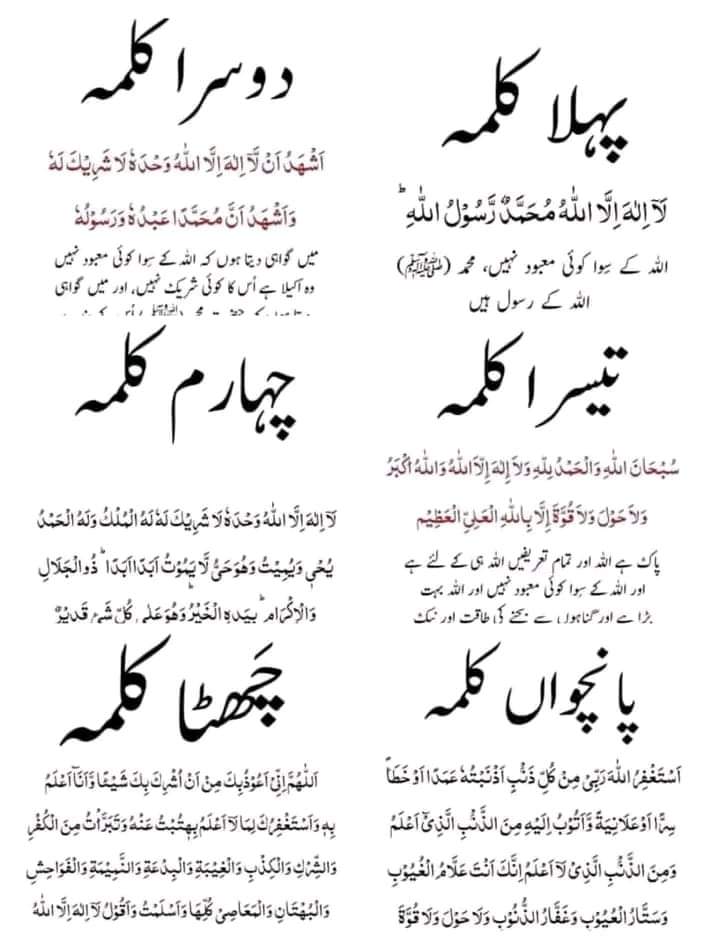 پہلا کلمہ
لَآ اِلٰهَ اِلَّا اللّٰهُ مُحَمَّدٌ رَّسُوْلُ اللّٰهِ ؕ
اللہ کے سِوا کوئی معبود نہیں، محمد (ﷺ)
اللہ کے رسول ہیں
دوسرا کلمہ
اَشْهَدُ اَنْ لَّآ اِلٰهَ اِلَّا اللّٰهُ وَحْدَهٗ لَا شَرِيْكَ لَهٗ
وَاَشْهَدُ اَنَّ مُحَمَّدًا عَبْدُهٗ وَرَسُوْلُهٗ
میں گواہی دیتا ہوں کہ اللہ کے سِوا کوئی معبود نہیں
وہ اکیلا ہے اُس کا کوئی شریک نہیں، اور میں گواہی
تیسرا کلمہ
سُبْحَانَ اللّٰهِ وَالْحَمْدُ لِلّٰهِ وَلَا اِلٰهَ اِلَّا اللّٰهُ وَاللّٰهُ اَكْبَرُ
وَلَا حَوْلَ وَلَا قُوَّةَ اِلَّا بِاللّٰهِ الْعَلِيِّ الْعَظِيْمِ
پاک ہے اللہ اور تمام تعریفیں اللہ ہی کے لئے ہے
اور اللہ کے سِوا کوئی معبود نہیں اور اللہ بہت
بڑا ہے اور گناہوں سے بچنے کی طاقت اور نیک
چہارم کلمہ
لَآ اِلٰهَ اِلَّا اللّٰهُ وَحْدَهٗ لَا شَرِيْكَ لَهٗ لَهُ الْمُلْكُ وَلَهُ الْحَمْدُ
يُحْيٖ وَيُمِيْتُ وَهُوَ حَیٌّ لَّا يَمُوْتُ اَبَدًا اَبَدًا ؕ ذُو الْجَلَالِ
وَالْاِكْرَامِ ؕ بِيَدِهِ الْخَيْرُ ؕ وَهُوَ عَلٰی كُلِّ شَیْءٍ قَدِيْرٌ
پانچواں کلمہ
اَسْتَغْفِرُ اللّٰهَ رَبِّیْ مِنْ كُلِّ ذَنْۢبٍ اَذْنَبْتُهٗ عَمَدًا اَوْ خَطَاً
سِرًّا اَوْ عَلَانِيَةً وَّاَتُوْبُ اِلَيْهِ مِنَ الذَّنْۢبِ الَّذِیْٓ اَعْلَمُ
وَمِنَ الذَّنْۢبِ الَّذِیْ لَآ اَعْلَمُ اِنَّكَ اَنْتَ عَلَّامُ الْغُيُوْبِ
وَسَتَّارُ الْعُيُوْبِ وَغَفَّارُ الذُّنُوْبِ وَلَا حَوْلَ وَلَا قُوَّةَ
چَھٹا کلمہ
اَللّٰهُمَّ اِنِّیْٓ اَعُوْذُ بِكَ مِنْ اَنْ اُشْرِكَ بِكَ شَيْئًا وَّاَنَآ اَعْلَمُ
بِهٖ وَاَسْتَغْفِرُكَ لِمَا لَآ اَعْلَمُ بِهٖ تُبْتُ عَنْهُ وَتَبَرَّأْتُ مِنَ الْكُفْرِ
وَالشِّرْكِ وَالْكِذْبِ وَالْغِيْبَةِ وَالْبِدْعَةِ وَالنَّمِيْمَةِ وَالْفَوَاحِشِ
وَالْبُهْتَانِ وَالْمَعَاصِیْ كُلِّهَا وَاَسْلَمْتُ وَاَقُوْلُ لَآ اِلٰهَ اِلَّا اللّٰهُ